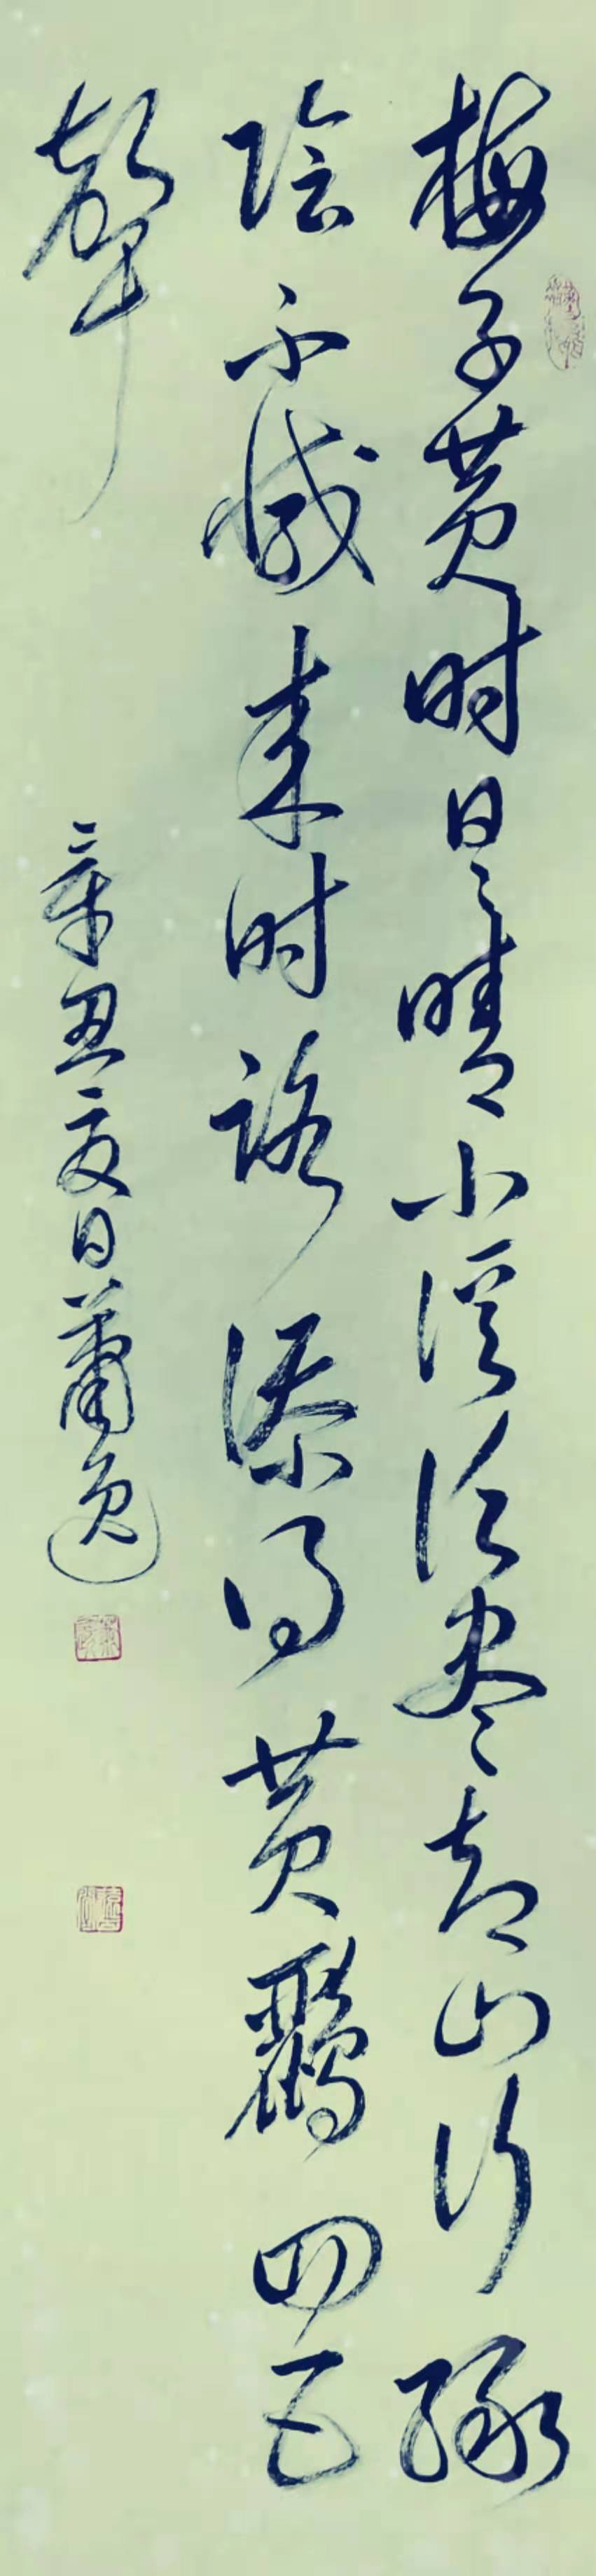 梅子黄时日日晴小溪泛尽却山行绿
阴不减来时路添得黄鸝四五
聲
辛丑夏日蕭逸